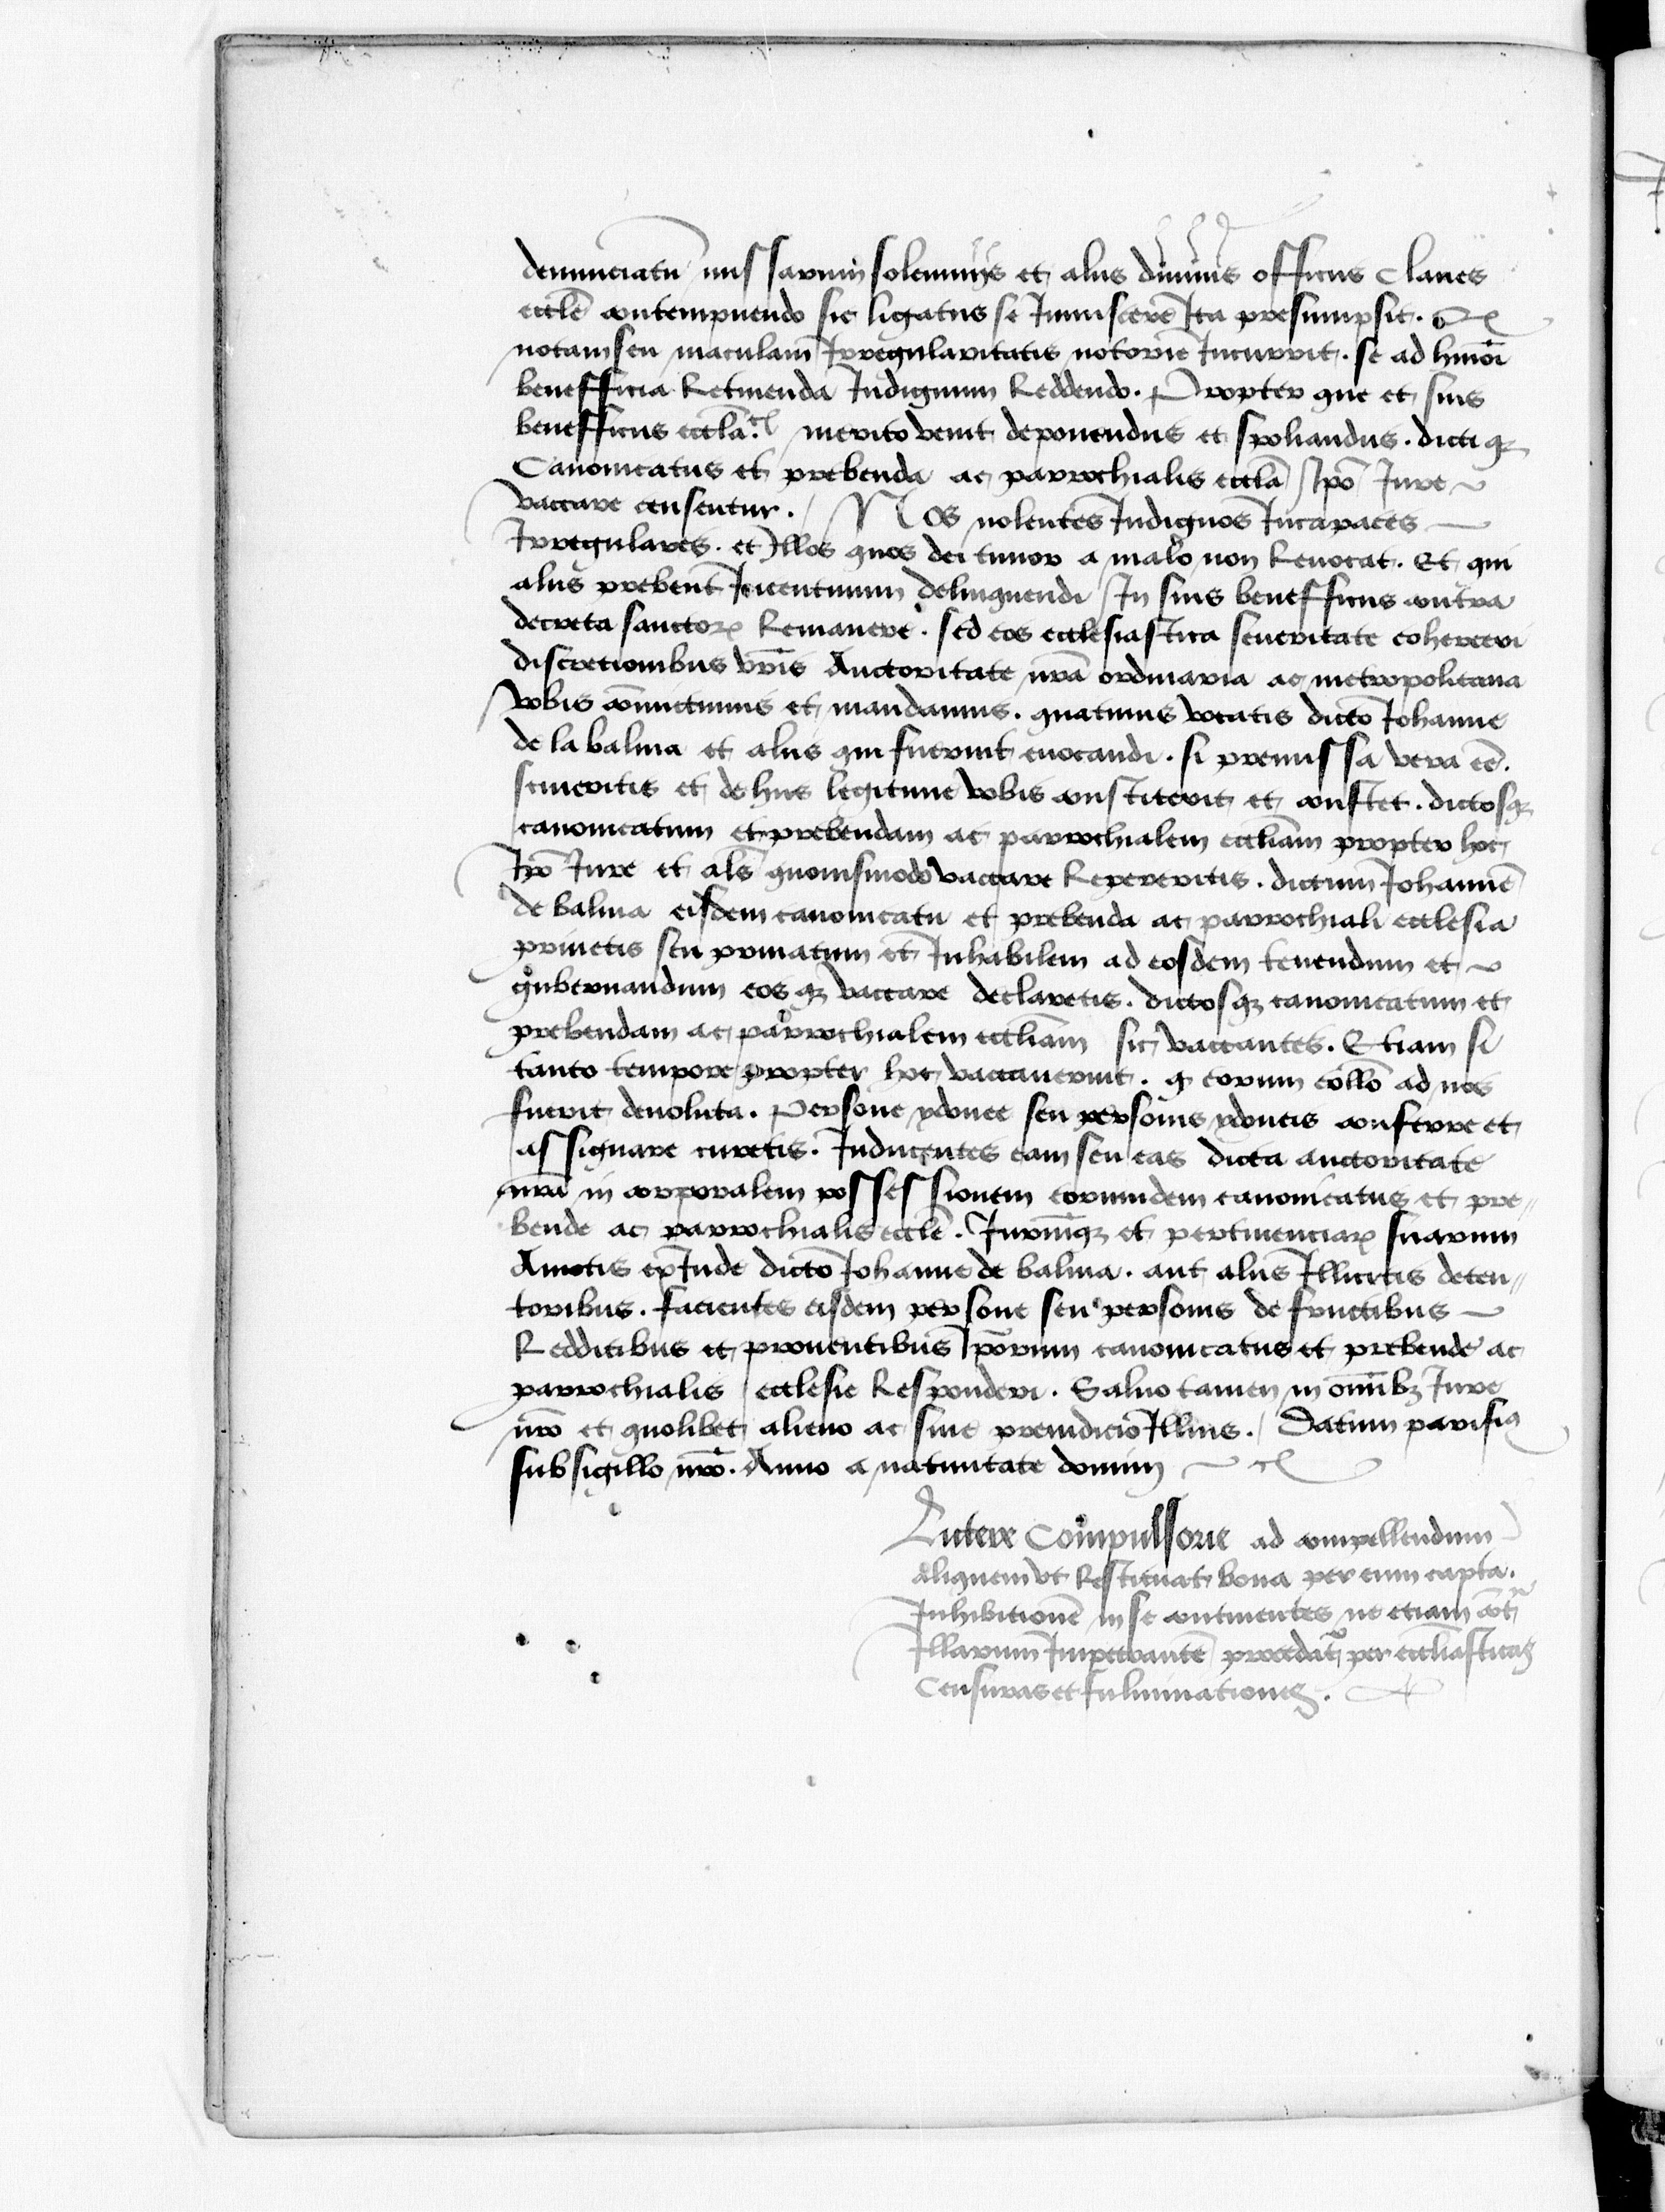 denunciatu missarum solemnijs et aliis diuinis officiis Claues
eccle contempnendo sic ligatus se Immiscere Ita presumpsit.
notam seu maculam Irregularitatis notorie Incurrit. se ad hmoi
benefficia Retinenda Indignum Reddendo. Propter que et suis
benefficiis eccla. merito venit deponendus et spoliandus. dictiq
Canonicatus et prebenda ac parrochialis eccla Ipo Jure
vaccare censentur. Nos nolentes Indignos Incapaces
Irregulares. et Illos quos dei timor a malo non Reuocat. Et qui
aliis prebent Incentiuum delinquendi In suis benefficiis contra
decreta sanctor Remanere. sed eos ecclesiastica seueritate coherceri
discretionibus vris Auctoritate nra ordinaria ac metropolitana
vobis committimus et mandamus. quatinus vocatis dicto Johanne
de la balma et aliis qui fuerint euocandi. si premissa vera ee.
sciueritis et de hiis legitime vobis constiterit et constet. dictosq
canonicatum et prebendam ac parrochialem eccliam propter hoc
Ipo Jure et als quouismodo vaccare Repereritis. dictum Johanne
de balma eisdem canonicatu et prebenda ac parrochiali ecclesia
priuetis seu priuatum et Inhabilem ad eosdem tenendum et
gubernandum eosq vaccare declaretis. dictosq canonicatum et
prebendam ac parrochialem eccliam sic vaccantes. Etiam si
tanto tempore propter hoc vaccauerint. q eorum collo ad nos
fuerit deuoluta. Persone ydonee seu personis ydoneis conferre et
assignare curetis. Inducentes eam seu eas dicta auctoritate
nra in corporalem possessionem eorumdem canonicatus et pre„
bende ac parrochialis eccle. Juriumq et pertinenciar suarum
Amotis exInde dicto Johanne de balma. aut aliis Illicitis deten„
toribus. facientes eisdem persone seu personis de fructibus
Redditibus et prouentibus Iporum canonicatus et prebende ac
parrochialis ecclesie Responderi. Saluo tamen in omibz Jure
nro et quolibet alieno ac sine preiudicio Illius. Datum parisius
sub sigillo nro. Anno a natiuitate domini
Littere Compulsorie ad compellendum
aliquem vt Restituat bona per eum capta.
Inhibitione in se continentes ne etiam cotra
Illarum Impetrante procedat per eccliasticas
Censuras et fulminationes.